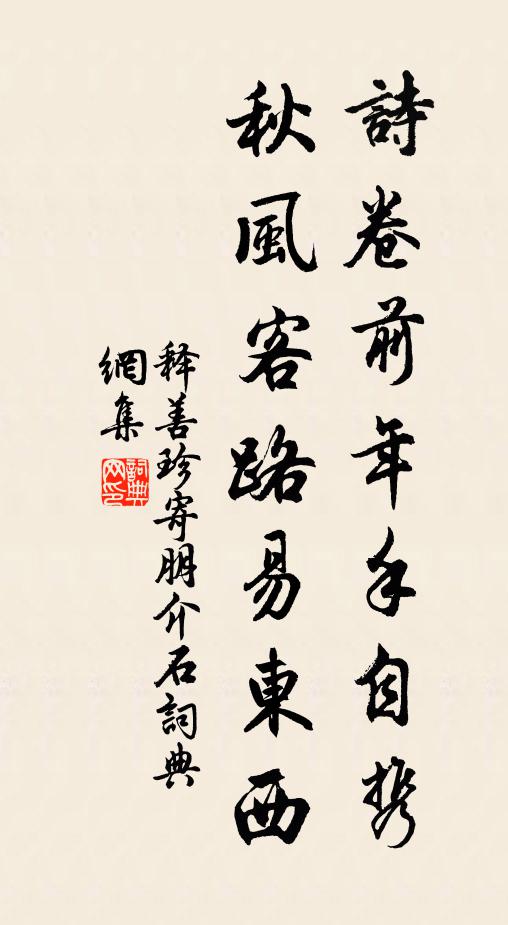 詩卷前年手自携
秋風客路易東西
释善珍寄朋介石詞典
網集
詞典網印